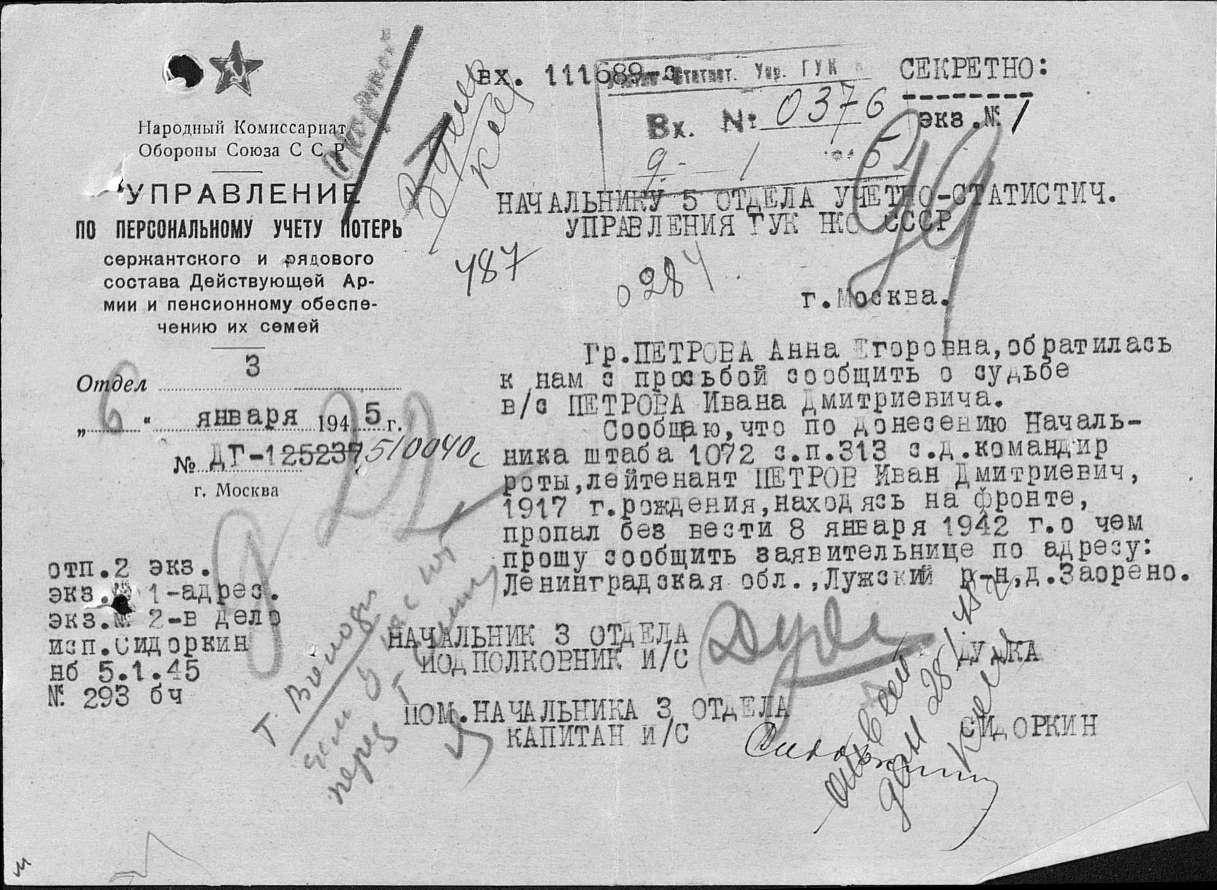 Народный Комиссариат
Обороны Союза С С Р
УПРАВЛЕНИЕ
ПО ПЕРСОНАЛЬНОМУ УЧЕТУ ПОТЕРЬ
сержантского и рядового
состава Действующей Ар-
мии и пенсионному обеспе-
чению их семей
Отдел 3
„6“ января 1945 г.
№ ДГ-125237 510040с
г. Москва
вх. 111689-с
Учетно-Статист. Упр. ГУК
Вх. № 0376
9 - 1
СЕКРЕТНО:
экз.№ 1
99
В дело
487
0284
НАЧАЛЬНИКУ 5 ОТДЕЛА УЧЕТНО-СТАТИСТИЧ.
УПРАВЛЕНИЯ ГУК НКО СССР
г.Москва.
Гр.ПЕТРОВА Анна Егоровна,обратилась
к нам с просьбой сообщить о судьбе
в/с ПЕТРОВА Ивана Дмитриевича.
Сообщаю,что по донесению Началь-
ника штаба 1072 с.п.313 с.д.командир
роты,лейтенант ПЕТРОВ Иван Дмитриевич,
1917 г.рождения,находясь на фронте,
пропал без вести 8 января 1942 г.о чем
прошу сообщить заявительнице по адресу:
Ленинградская обл.,Лужский р-н,д.Заорено.
отп.2 экз.
экз.№ 1-адрес.
экз.№ 2-в дело
исп.Сидоркин
нб 5.1.45
№ 293 бч
НАЧАЛЬНИК 3 ОТДЕЛА
ПОДПОЛКОВНИК И/С ДУДКА
ПОМ.НАЧАЛЬНИКА 3 ОТДЕЛА
КАПИТАН И/С СИДОРКИН
Сидоркин